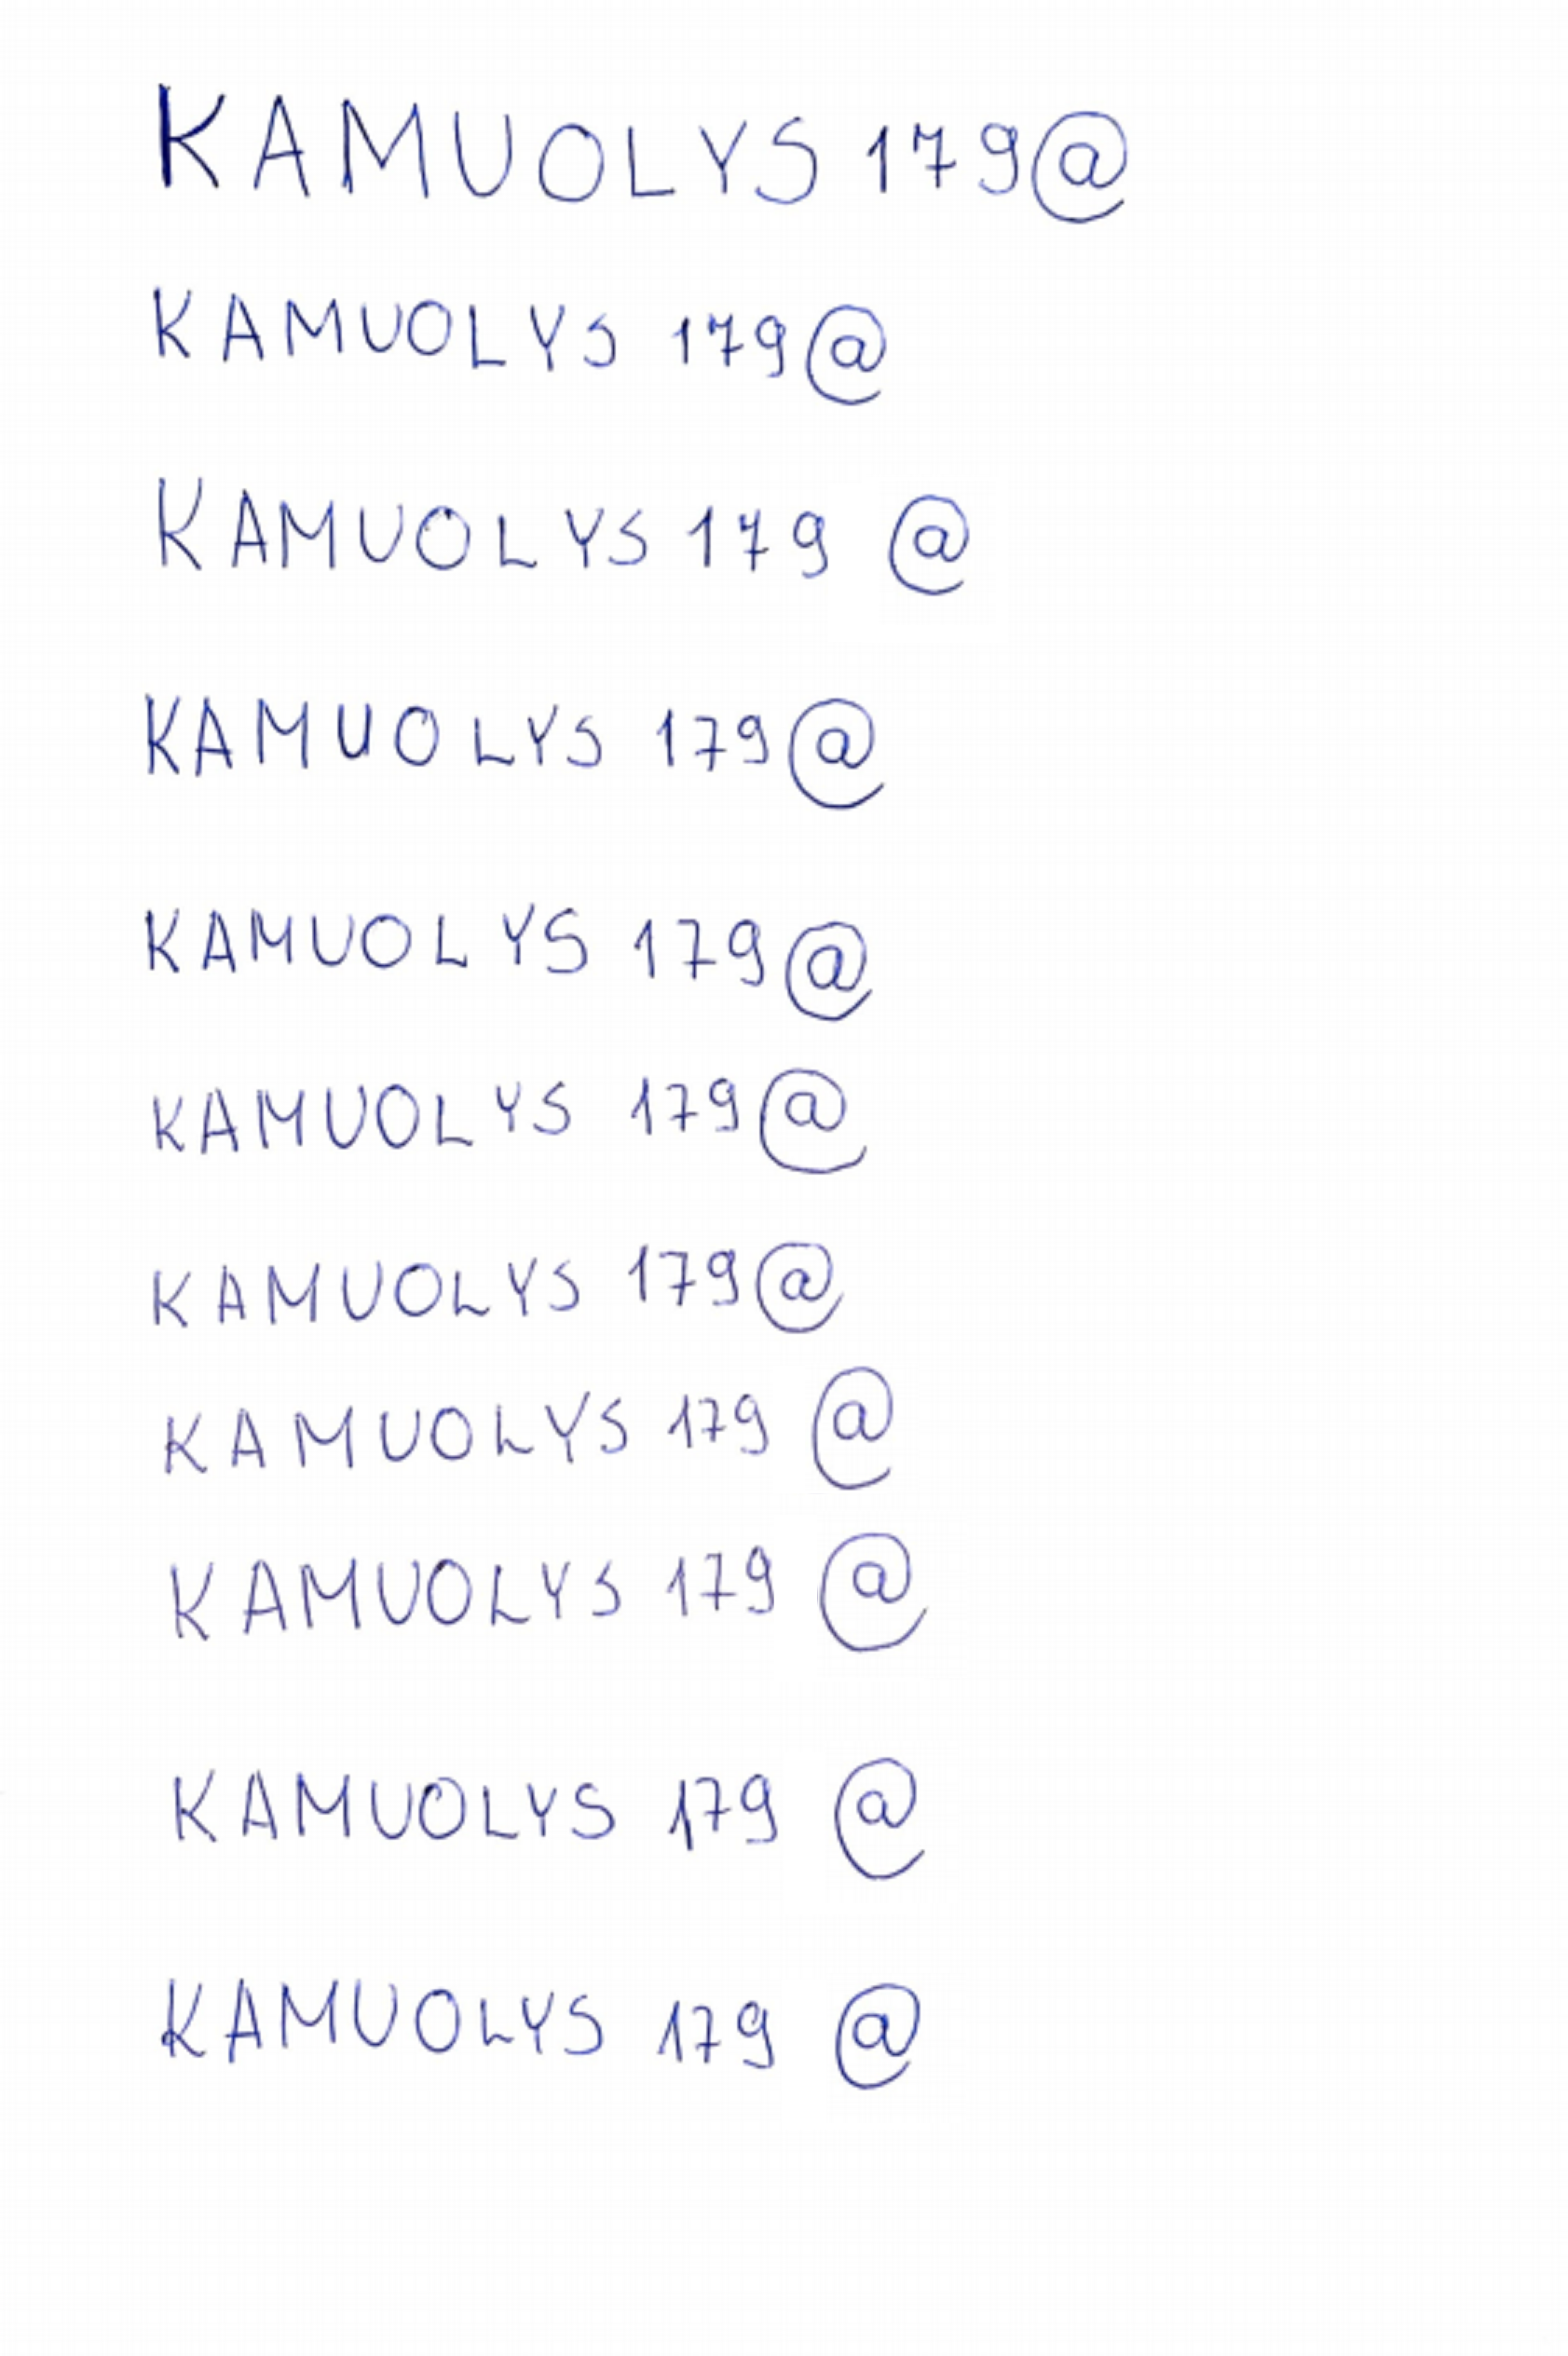 KAMUOLYS 179@
KAMUOLYS 179@
KAMUOLYS 179 @
KAMUOLYS 179@
KAMUOLYS 179@
KAMUOLYS 179@
KAMUOLYS 179@
KAMUOLYS 179 @
KAMUOLYS 179 @
KAMUOLYS 179 @
KAMUOLYS 179 @